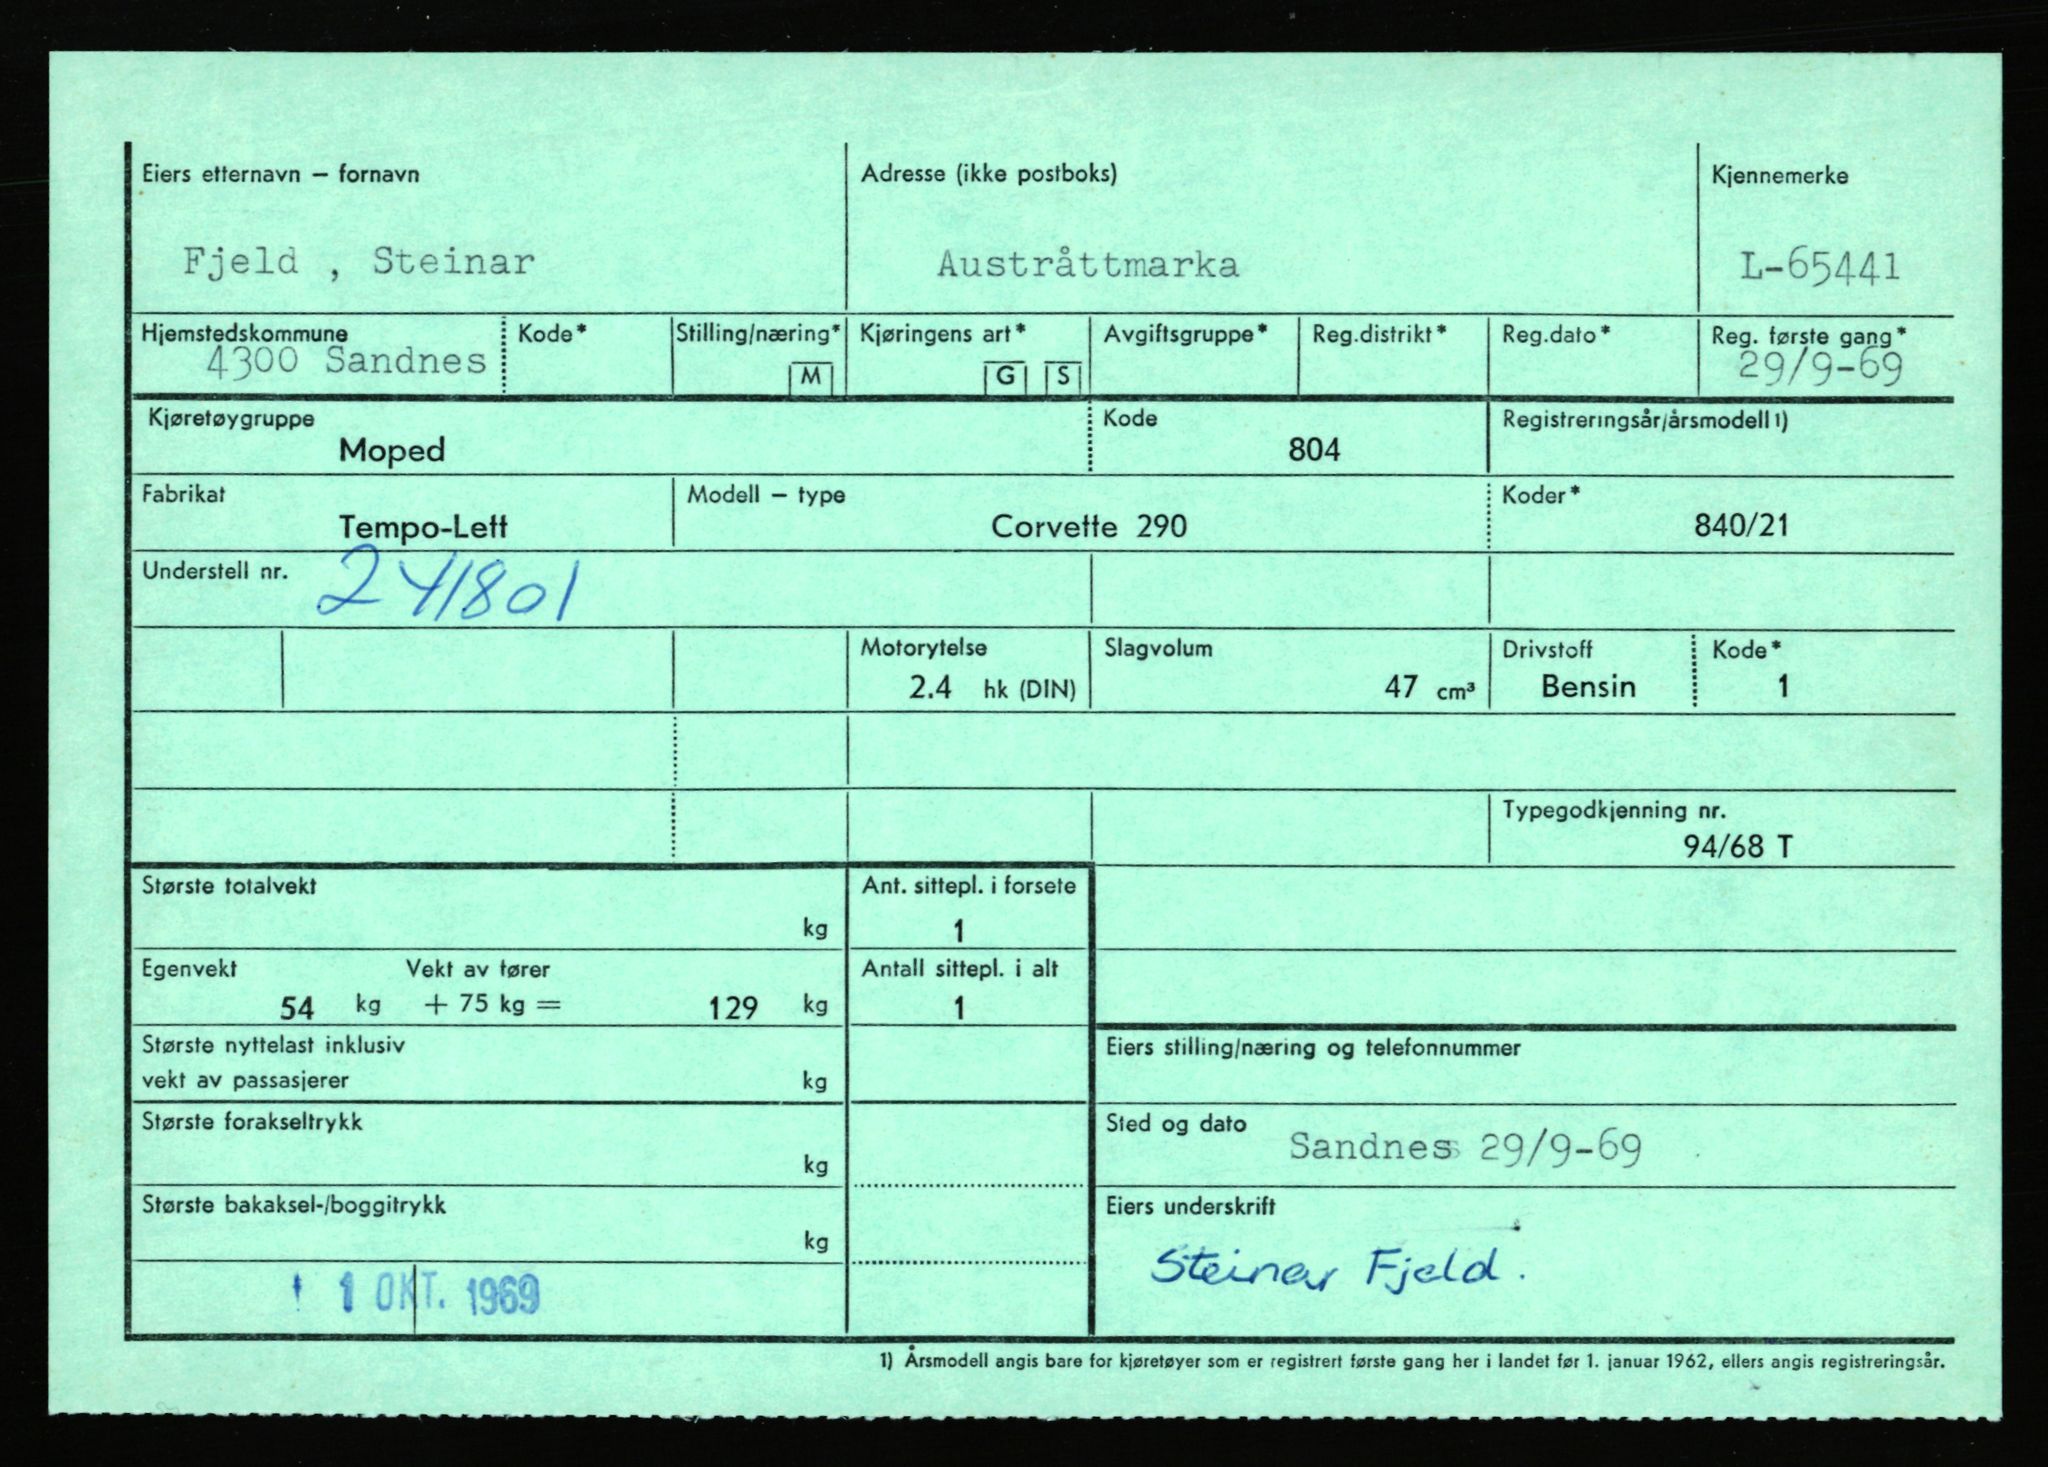 Eiers etternavn – fornavn Adresse (ikke postboks) Kjennemerke
Fjeld , Steinar Austråttmarka L-65441
Hjemstedskommune Kode* Stilling/næring* Kjøringens art* Avgiftsgruppe* Reg.distrikt* Reg.dato* Reg. første gang*
4300 Sandnes M G S 29/9-69
Kjøretøygruppe Kode Registreringsår/årsmodell 1)
Moped 804
Fabrikat Modell – type Koder*
Tempo-Lett Corvette 290 840/21
Understell nr. 241801
Motorytelse Slagvolum Drivstoff Kode*
2.4 hk (DIN) 47 cm³ Bensin 1
Typegodkjenning nr.
94/68 T
Største totalvekt Ant. sittepl. i forsete
kg 1
Egenvekt Vekt av fører Antall sittepl. i alt
54 kg + 75 kg = 129 kg 1
Største nyttelast inklusiv Eiers stilling/næring og telefonnummer
vekt av passasjerer kg
Største forakseltrykk Sted og dato
Sandnes 29/9-69
kg
Største bakaksel-/boggitrykk Eiers underskrift
kg
Steinar Fjeld.
1 OKT. 1969
1) Årsmodell angis bare for kjøretøyer som er registrert første gang her i landet før 1. januar 1962, ellers angis registreringsår.